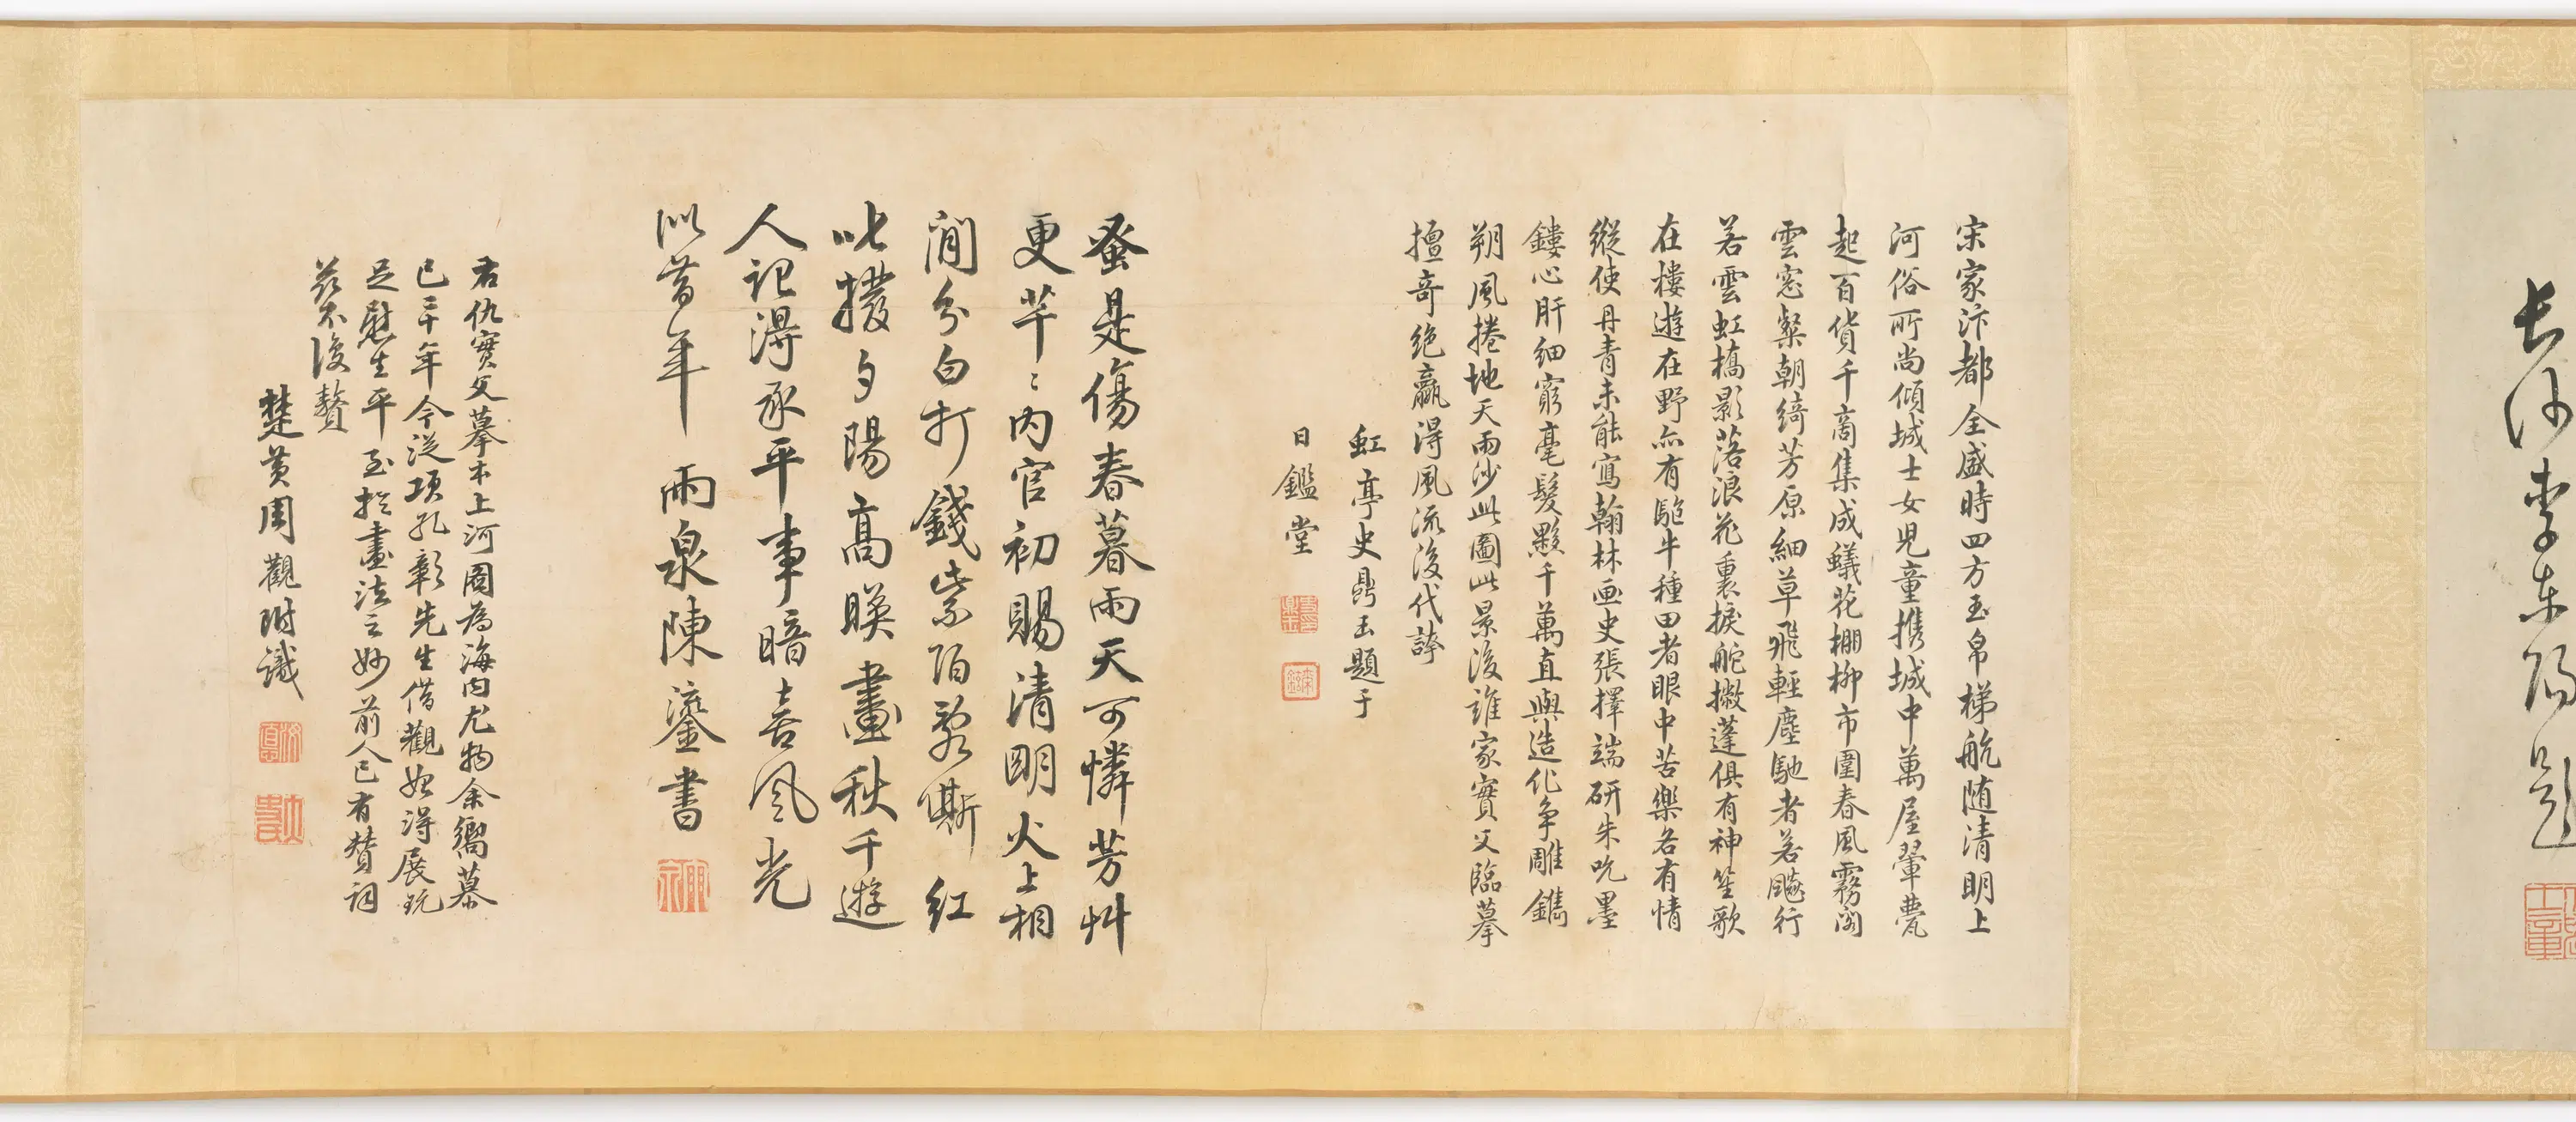 長沙李東陽題
宋家汴都全盛時四方玉帛梯航随清明上
河俗所尚傾城士女児童攜城中萬屋翬甍
起百貨千商集成蟻花棚柳市圍春風霧閣
雲窓粲朝綺芳原細草飛輕塵馳者若飈行
若雲虹橋影落浪花裏捩舵撇蓬俱有神笙歌
在樓遊在野亦有駈牛種田者眼中苦樂各有情
縱使丹青未能寫翰林画史張擇端研朱吮墨
鏤心肝細窮毫髮夥千萬直與造化争雕鐫
朔風捲地天雨沙此圖此景後誰家實父臨摹
擅奇絶贏得風流後代誇
虹亭史鼎玉題于
日鑑堂
蚤是傷春暮雨天可憐芳艸
更芊〻内官初賜清明火上相
閒分白打錢紫陌亂嘶紅
叱撥夕陽高映畫秋千遊
人記得承平事暗喜風光
似昔年 雨泉陳鎏書
右仇實父摹本上河圖為海内尤物余嚮慕
已三十年今従項孔彰先生借觀始得展玩
足慰生平至於畫法之妙前人已有賛詞
茲不復贅
楚黄周觀附識